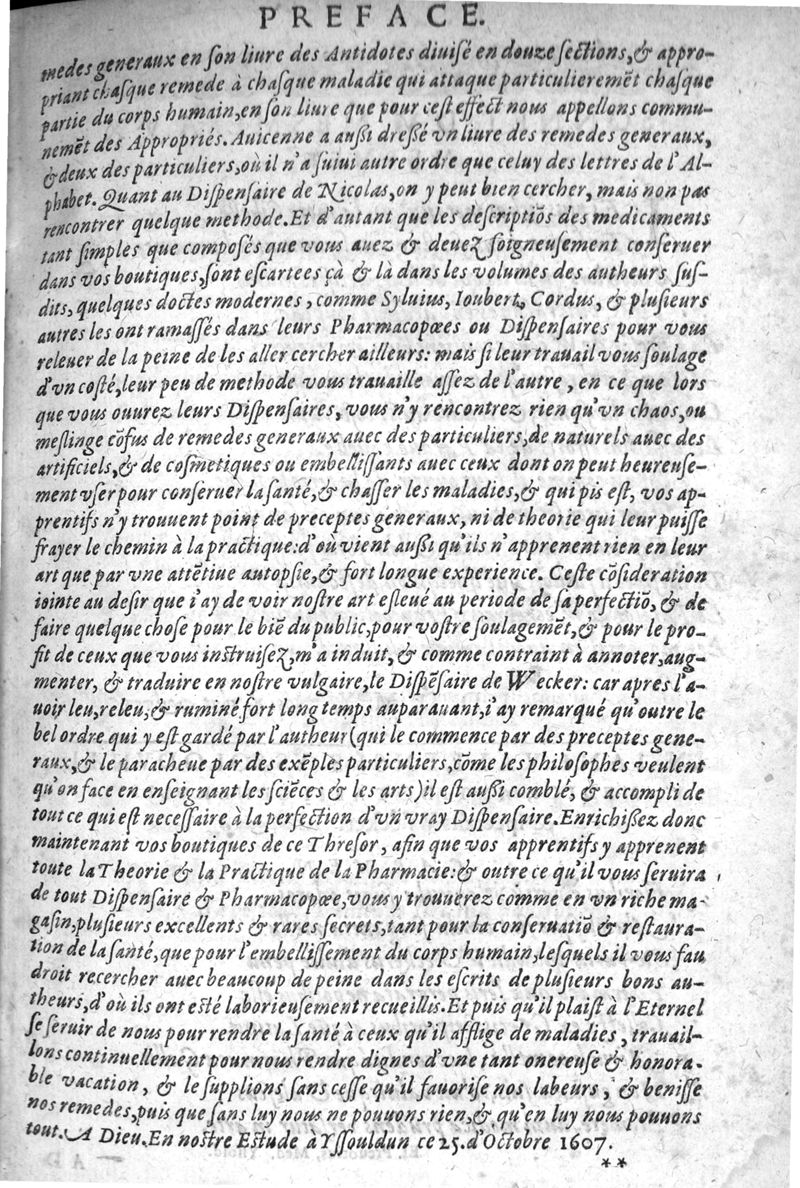 PREFACE.
medes generaux en ſon liure des Antidotes diuiſé en douze ſections,& appro-
priant chaſque remede à chaſque maladie qui attaque particulieremēt chaſque
partie du corps humain,en ſon liure que pour ceſt effect nous appellons commu-
nemēt des Appropriés. Auicenne a außi dreſſé vn liure des remedes generaux,
& deux des particuliers, où il n'a ſuiui autre ordre que celuy des lettres de l'Al-
phabet. Quant au Diſpenſaire de Nicolas, on y peut bien cercher, mais non pas
rencontrer quelque methode. Et d'autant que les deſcriptiõs des medicaments
tant ſimples que compoſés que vous auez & deuez ſoigneuſement conſeruer
dans vos boutiques,ſont eſcartees çà & là dans les volumes des autheurs ſuſ-
dits, quelques doctes modernes, comme Syluius, Ioubert, Cordus, & pluſieurs
autres les ont ramaſſés dans leurs Pharmacopœes ou Diſpenſaires pour vous
releuer de la peine de les aller cercher ailleurs: mais ſi leur trauail vous ſoulage
d'vn coſté,leur peu de methode vous trauaille aſſez de l'autre, en ce que lors
que vous ouurez leurs Diſpenſaires, vous n'y rencontrez rien qu'vn chaos,ou
meſlinge cõfus de remedes generaux auec des particuliers,de naturels auec des
artificiels,& de coſmetiques ou embelliſſants auec ceux dont on peut heureuſe-
ment vſer pour conſeruer la ſanté,& chaſſer les maladies,& qui pis eſt, vos ap-
prentifs n'y trouuent point de preceptes generaux, ni de theorie qui leur puiſſe
frayer le chemin à la practique:d'où vient außi qu'ils n'apprenent rien en leur
art que par vne attētiue autopſie,& fort longue experience. Ceſte cõſideration
iointe au deſir que i'ay de voir noſtre art eſleué au periode de ſa perfectiõ, & de
faire quelque choſe pour le biē du public,pour voſtre ſoulagemēt,& pour le pro-
fit de ceux que vous inſtruiſez,m'a induit, & comme contraint à annoter,aug-
menter, & traduire en noſtre vulgaire,le Diſpēſaire de Wecker: car apres l'a-
uoir leu,releu,& ruminé fort long temps auparauant,i'ay remarqué qu'outre le
bel ordre qui y eſt gardé par l'autheur(qui le commence par des preceptes gene-
raux,& le paracheue par des exēples particuliers,cõme les philoſophes veulent
qu'on face en enſeignant les ſciēces & les arts)il eſt außi comblé, & accompli de
tout ce qui eſt neceſſaire à la perfection d'vn vray Diſpenſaire. Enrichißez donc
maintenant vos boutiques de ce Threſor, afin que vos apprentifs y apprenent
toute la Theorie & la Practique de la Pharmacie:& outre ce qu'il vous ſeruira
de tout Diſpenſaire & Pharmacopœe,vous y trouuerez comme en vn riche ma-
gaſin,pluſieurs excellents & rares ſecrets,tant pour la conſeruatiõ & reſtaura-
tion de la ſanté,que pour l'embelliſſement du corps humain,leſquels il vous fau
droit recercher auec beaucoup de peine dans les eſcrits de pluſieurs bons au-
theurs,d'où ils ont eſté laborieuſement recueillis. Et puis qu'il plaiſt à l'Eternel
ſe ſeruir de nous pour rendre la ſanté à ceux qu'il afflige de maladies, trauail-
lons continuellement pour nous rendre dignes d'vne tant onereuſe & honora-
ble vacation, & le ſupplions ſans ceſſe qu'il fauoriſe nos labeurs, & beniſſe
nos remedes,puis que ſans luy nous ne pouuons rien,& qu'en luy nous pouuons
tout. A Dieu. En noſtre Eſtude à Yſſouldun ce 25. d'Octobre 1607.
**